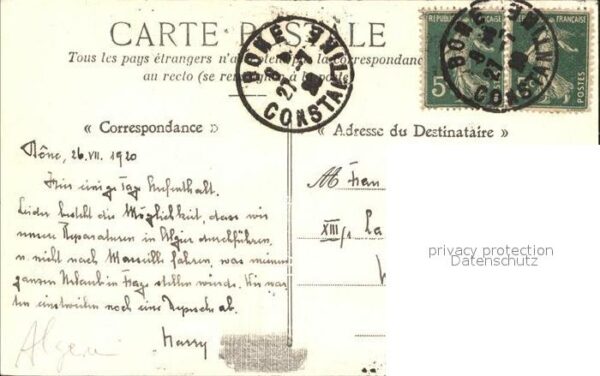 CARTE POSTALE
Tous les pays étrangers n'acceptent pas la correspondance
au recto (se renseigner à la poste)
BONE
CONSTANTINE
27-7
20
BONE
CONSTANTINE
27-7
20
RÉPUBLIQUE FRANÇAISE
5
POSTES
« Correspondance »
« Adresse du Destinataire »
Bône, 26.VII. 1920
Hier einige Tage Aufenthalt.
Leider besteht die Möglichkeit, dass wir
unsere Reparaturen in Algier durchführen,
u. nicht nach Marseille fahren, was meinen
ganzen Urlaub in Frage stellen würde. Wir war-
ten einstweilen noch eine Depesche ab.
Harry
Algeri
Frau
XIII/
La
privacy protection
Datenschutz